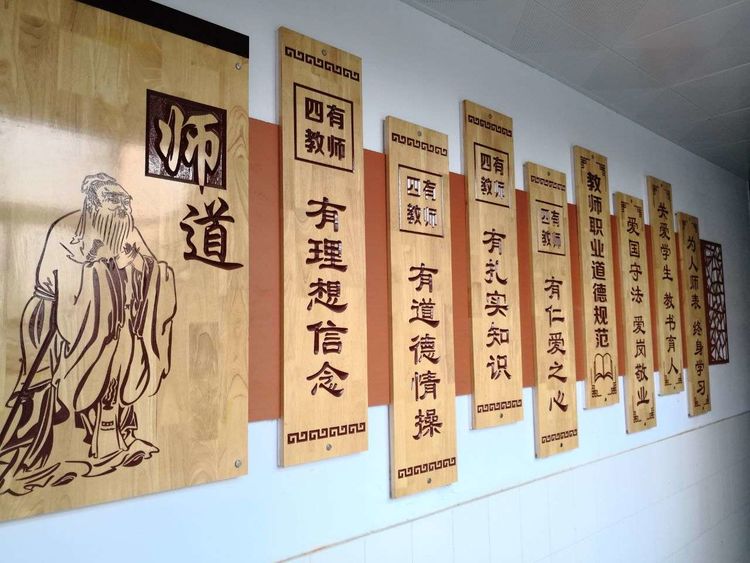 师道
四有
教师
有理想信念
四有
教师
有道德情操
四有
教师
有扎实知识
四有
教师
有仁爱之心
教师职业道德规范
爱国守法 爱岗敬业
关爱学生 教书育人
为人师表 终身学习